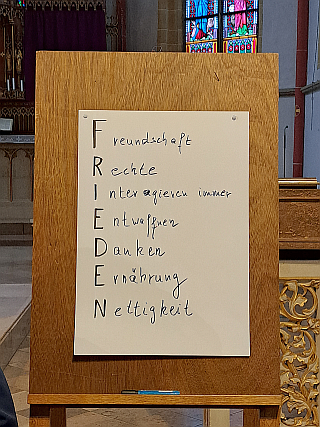 Freundschaft
Rechte
Interagieren immer
Entwaffnen
Danken
Ernährung
Nettigkeit